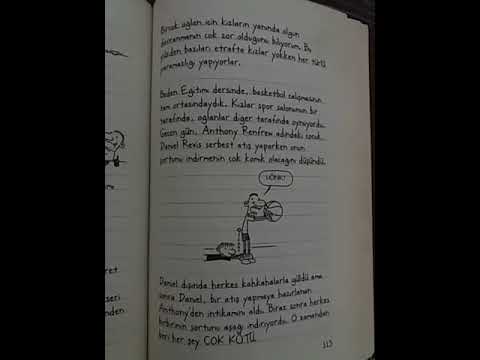 Birçok oğlan için kızların yanında olgun
davranmanın çok zor olduğunu biliyorum. Bu
yüzden bazıları etrafta kızlar yokken her türlü
yaramazlığı yapıyorlar.
Beden Eğitimi dersinde, basketbol çalışmasının
tam ortasındaydık. Kızlar spor salonunun bir
tarafında, oğlanlar diğer tarafında oynuyordu.
Geçen gün, Anthony Renfrew adındaki çocuk,
Daniel Revis serbest atış yaparken onun
şortunu indirmenin çok komik olacağını düşündü.
Daniel dışında herkes kahkahalarla güldü ama
sonra Daniel, bir atış yapmaya hazırlanan
Anthony'den intikamını aldı. Biraz sonra herkes
birbirinin şortunu aşağı indiriyordu. O zamandan
beri her şey ÇOK KÖTÜ.
ret
seri
nden
113